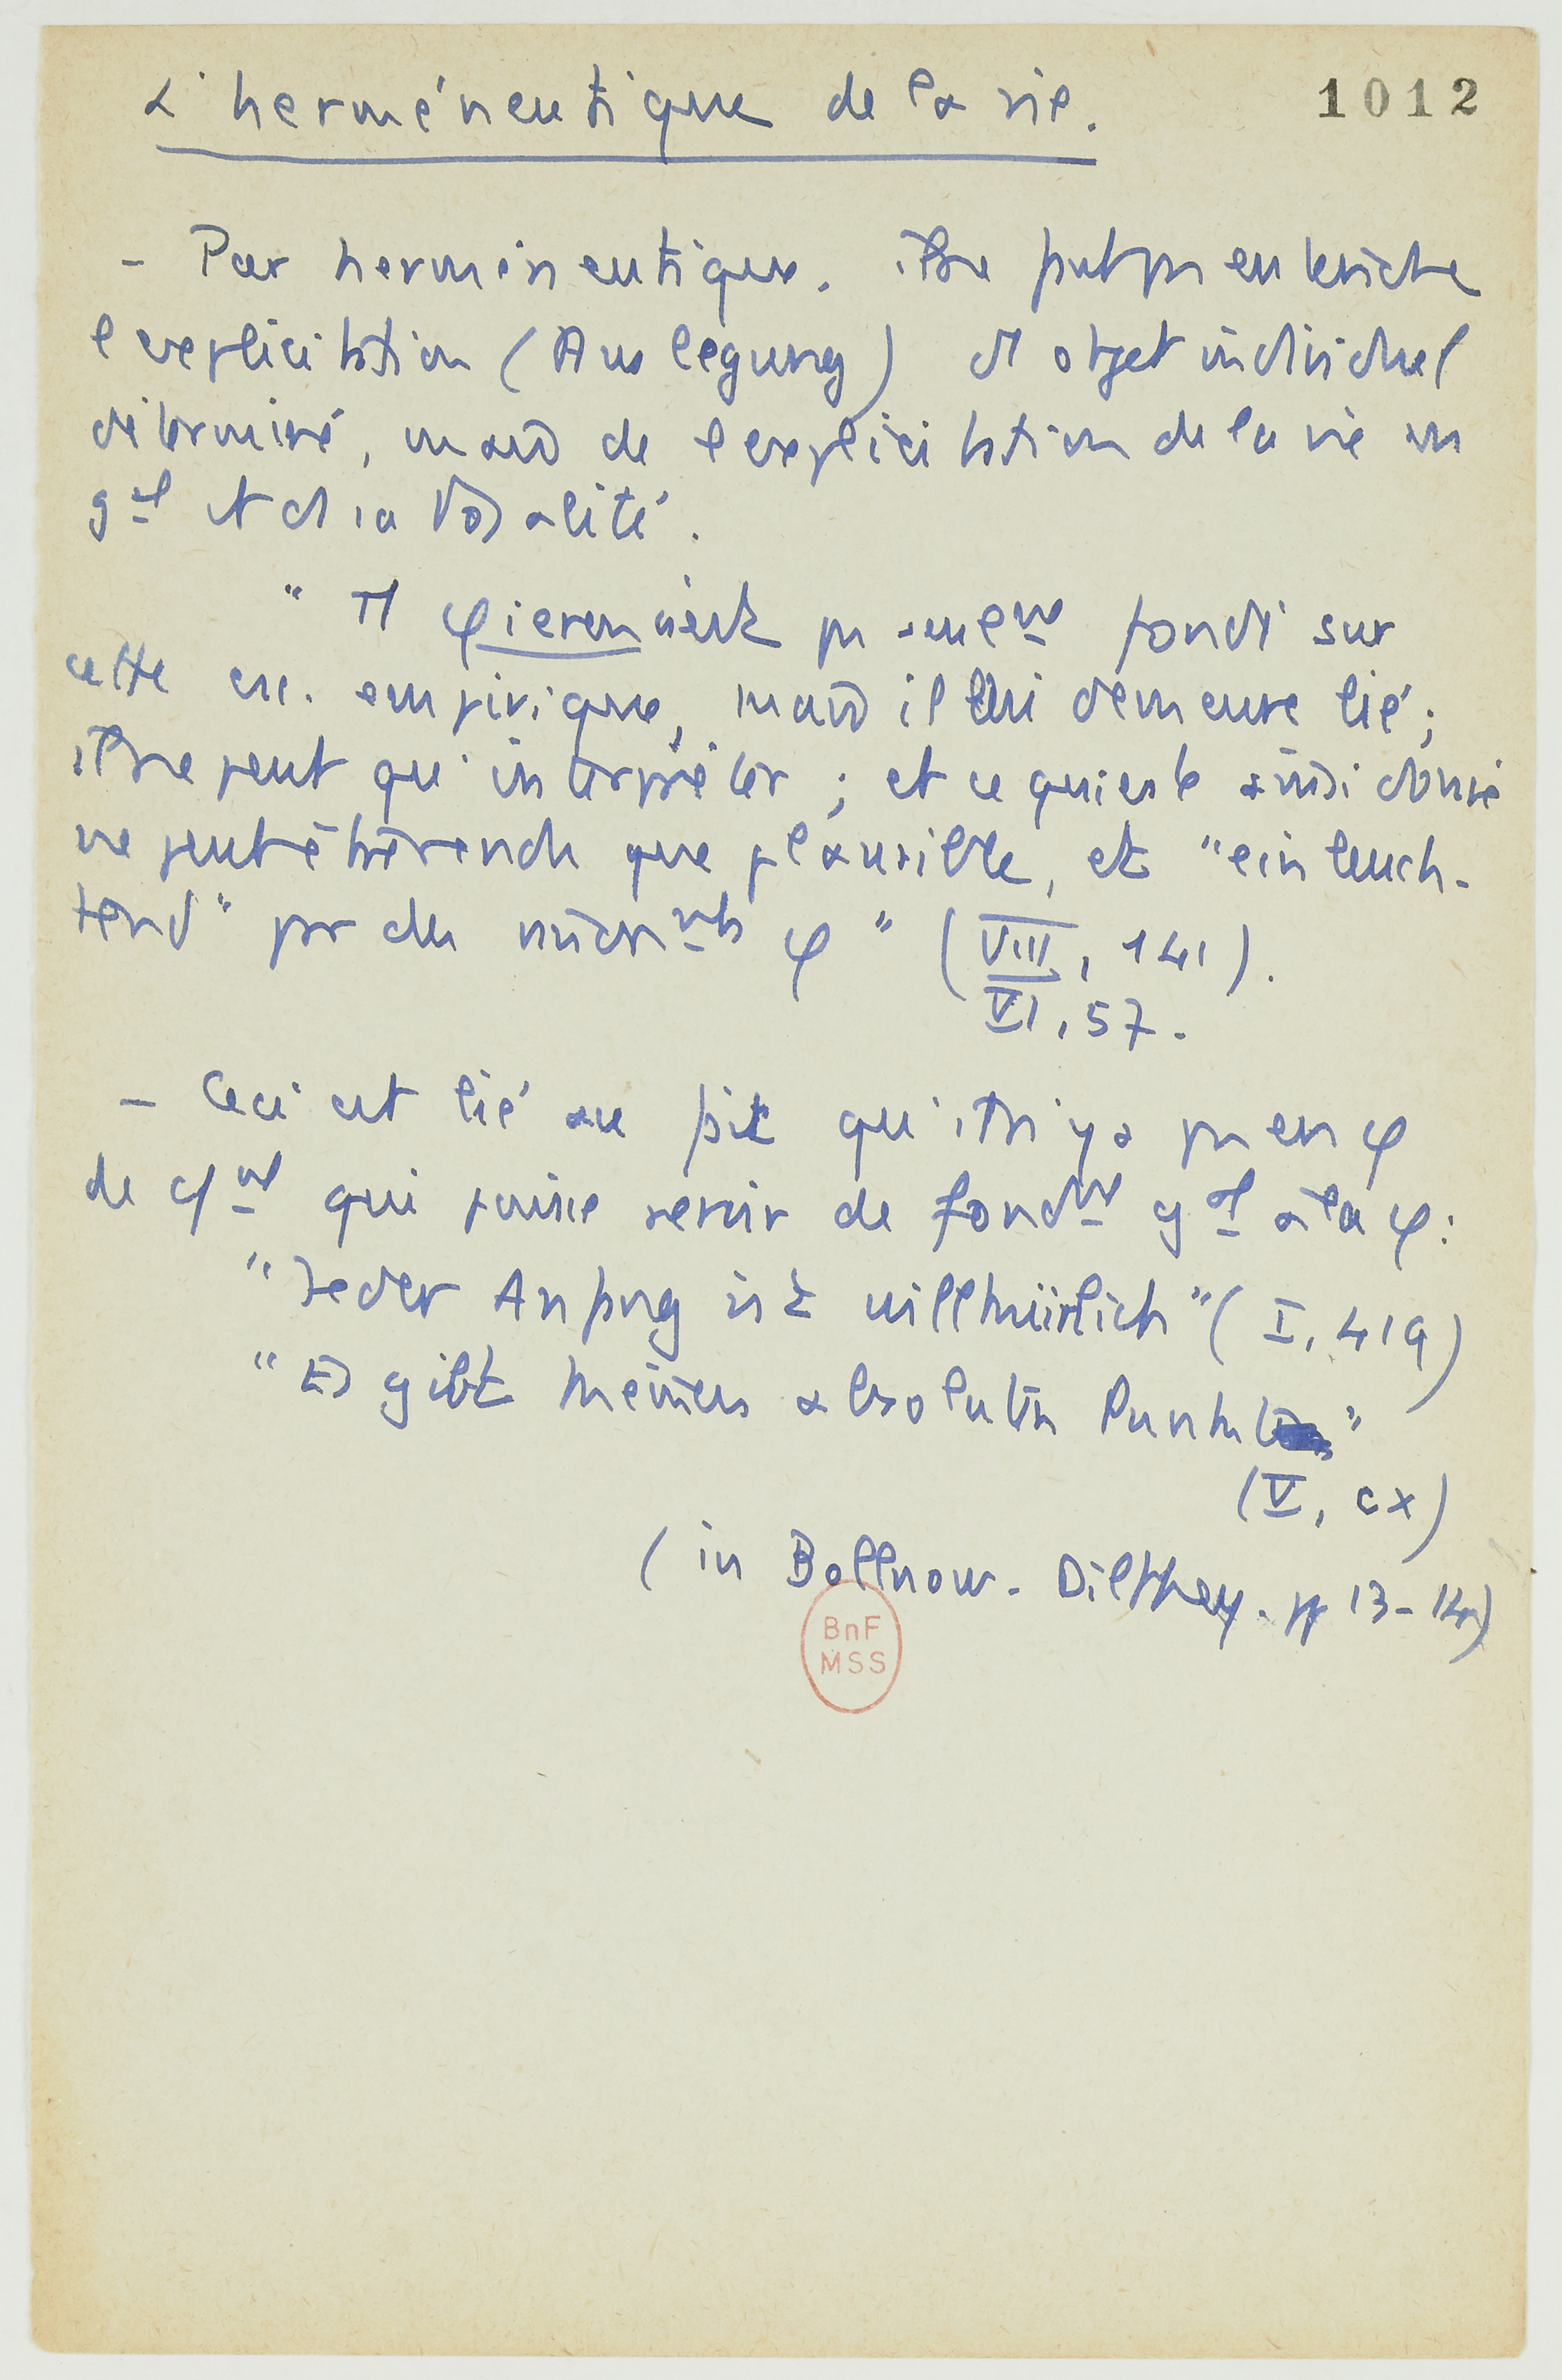 L'herméneutique de la vie.
1012
- Par herméneutique. il ne faut pas entendre
l'explicitation (Auslegung) d'1 objet individuel
déterminé, mais de l'explicitation de la vie en
gal et ds sa totalité.
" Il φieren n'est pas seulmt fondé sur
cette exp. empirique, mais il lui demeure lié ;
il ne peut qu'interpréter ; et ce qui est ainsi donné
ne peut être rendu que plausible, et "einleuch-
tend" pr des φ " (VIII, 141).
VI, 57.
- Ceci est lié au fait qu'il n'y a pas en φ
de qui puisse servir de fondmt gal à la φ :
"Jeder Anfang ist willkürlich" (I, 419)
"Es gibt keinen absoluten Punkt"
(V, cx)
(in Bollnow. Dilthey. pp 13-14)
BnF
MSS